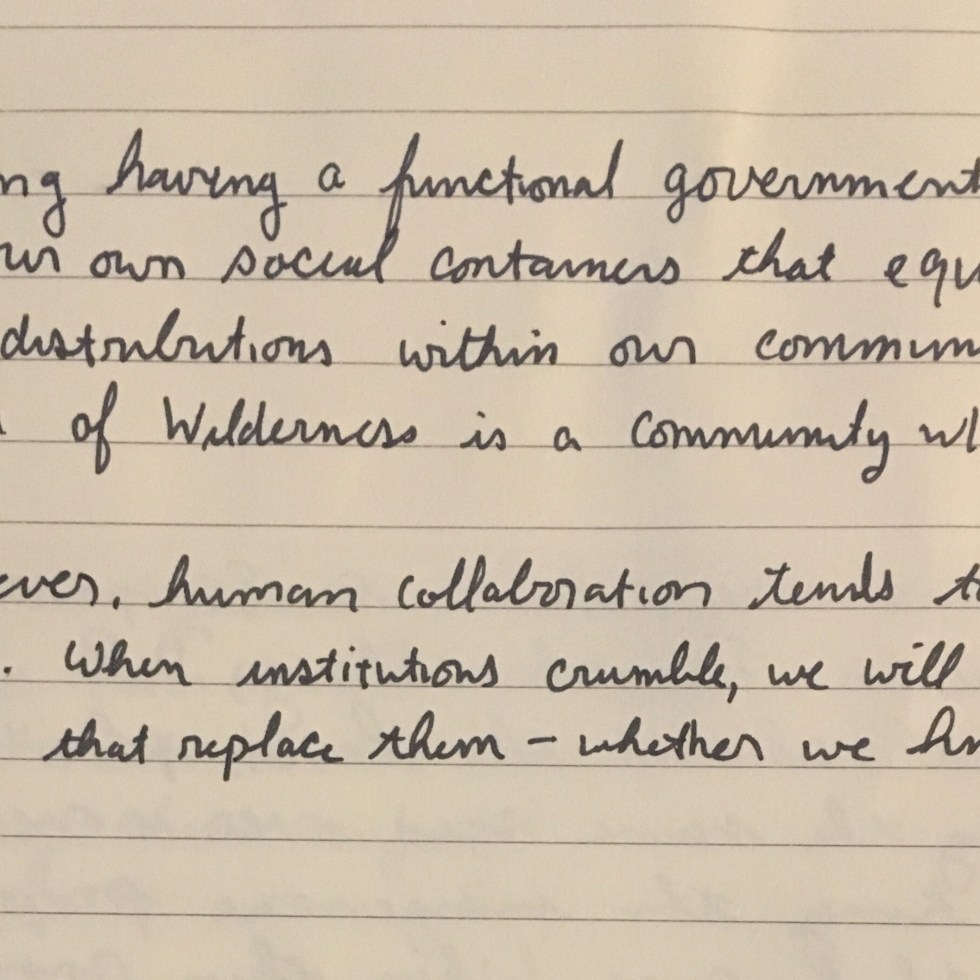 ng having a functional government
ur own social containers that equ
distributions within our commun
of Wilderness is a community wh
ever, human collaboration tends to
. When institutions crumble, we will
that replace them – whether we kn